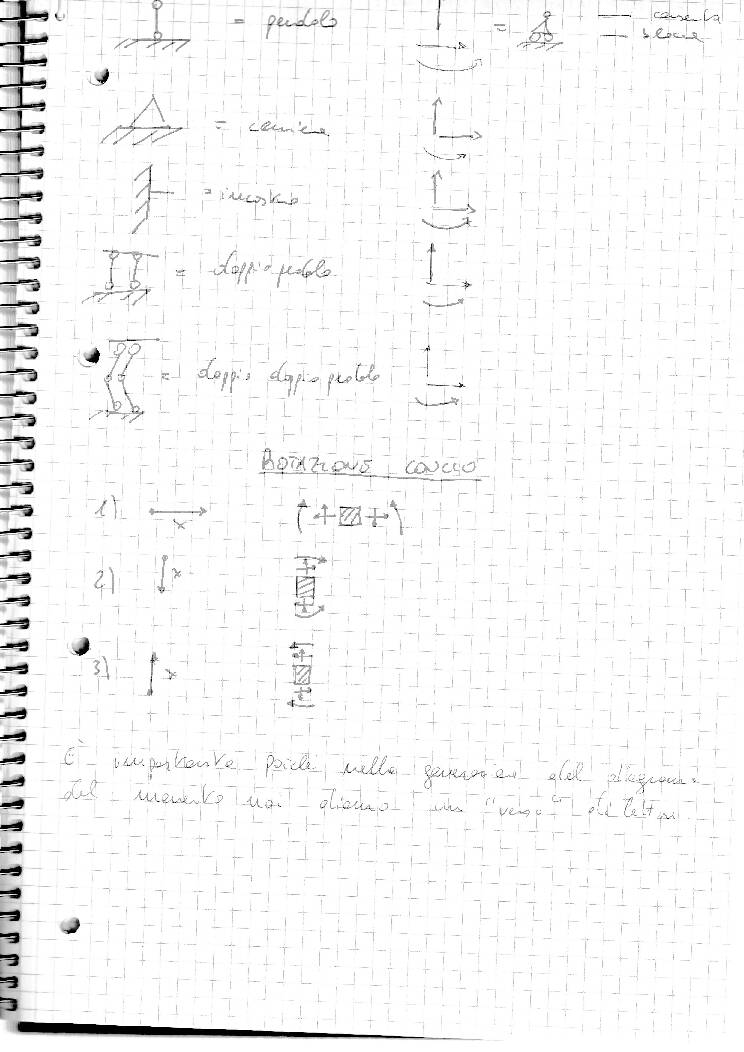 = pendolo = — consente
— blocca
= cerniera
= incastro
= doppio pendolo
= doppio doppio pendolo
ROTAZIONE CONCIO
1) x
2) x
3) x
È importante poiché nella generazione del diagramma
del momento noi diamo un "verso" di